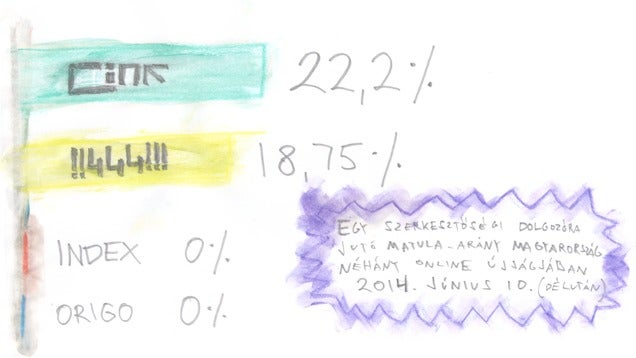 Cink 22,2%
!!444!!! 18,75%
INDEX 0%
ORIGO 0%
EGY SZERKESZTŐSÉGI DOLGOZÓRA
JUTÓ MATULA-ARÁNY MAGYARORSZÁG
NÉHÁNY ONLINE ÚJSÁGJÁBAN
2014. JÚNIUS 10. (DÉLUTÁN)